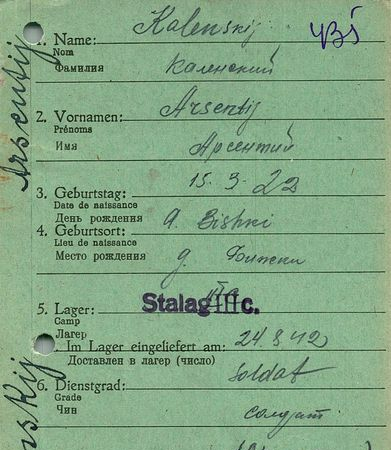 Kalenskij
1. Name:
Nom
Фамилия
Каленский
Arsentij
2. Vornamen:
Prénoms
Имя
Арсентий
15. 3. 22
3. Geburtstag:
Date de naissance
День рождения
d. Bishki
4. Geburtsort:
Lieu de naissance
Место рождения
д. Бижки
5. Lager:
Stalag IIIc.
Camp
Лагерь
24. 8. 42
. Im Lager eingeliefert am:
Доставлен в лагерь (число)
Soldat
6. Dienstgrad:
Grade
Чин
солдат
Arsentij
nskij